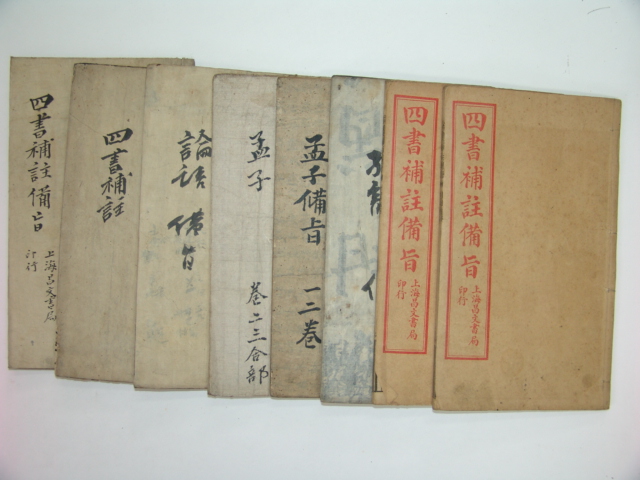 四書補註備旨
上海昌文書局
印行
四書補註
論語備旨
孟子
巻二三合部
孟子備旨
一二巻
四書補註備旨
上海昌文書局
印行
四書補註備旨
上海昌文書局
印行